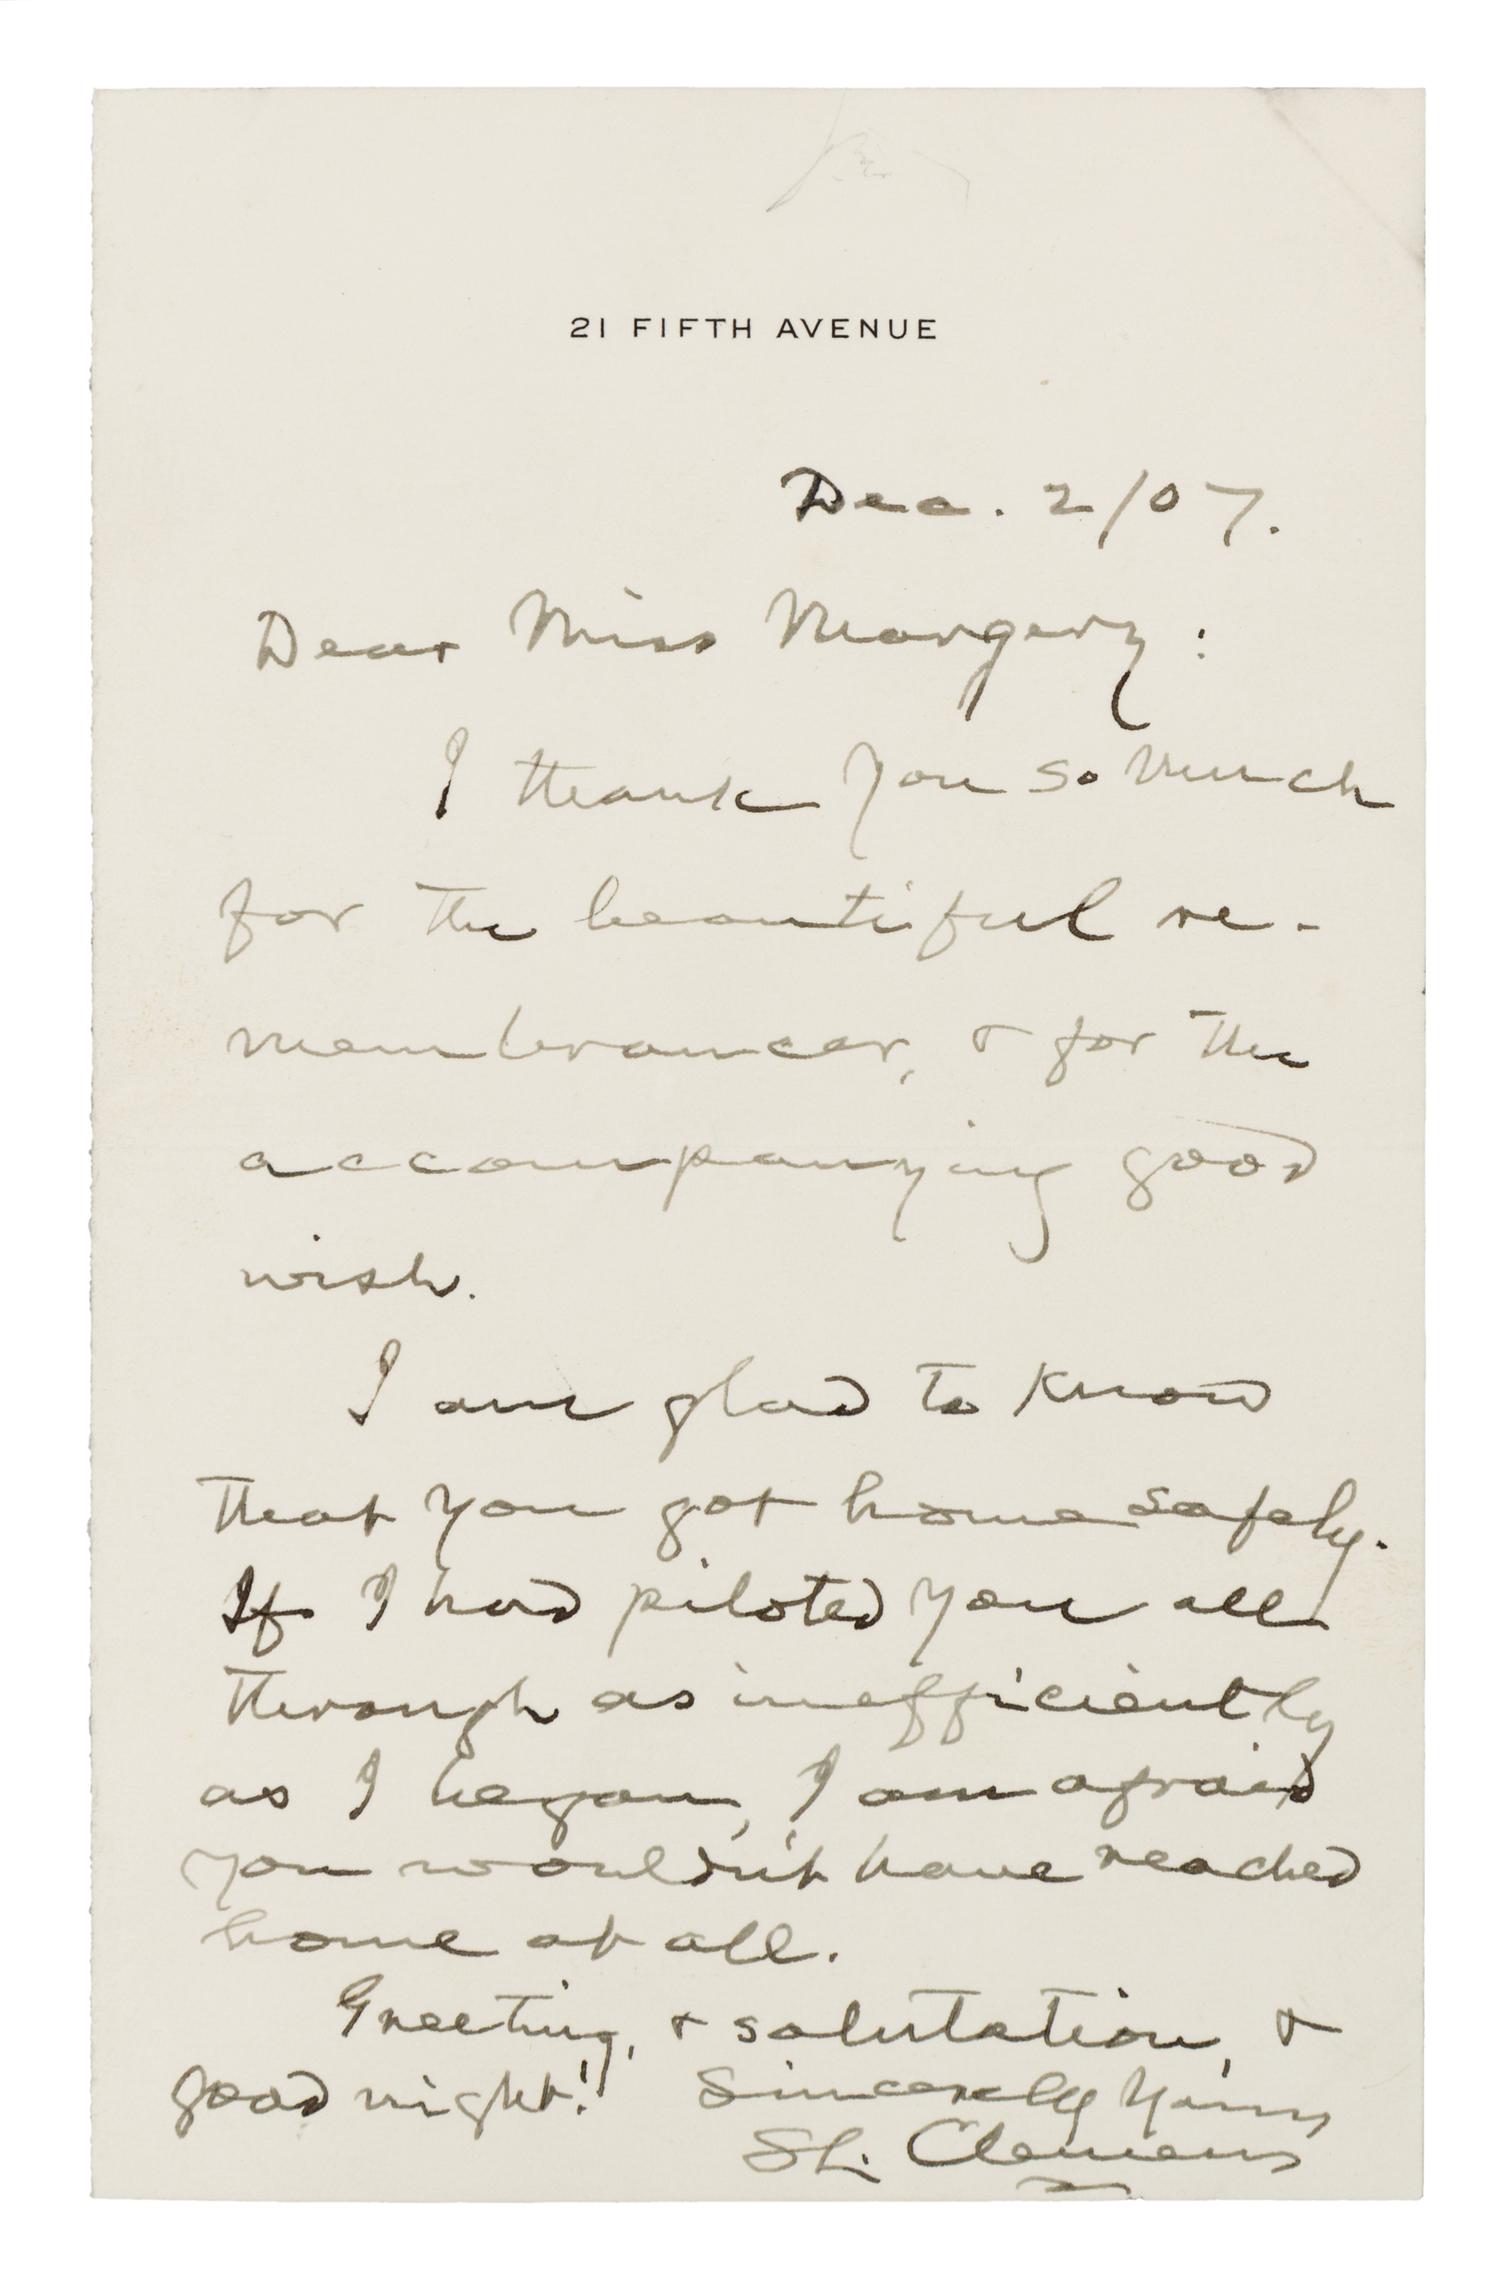 21 FIFTH AVENUE
Dec. 2/07.
Dear Miss Margery:
I thank you so much
for the beautiful re-
membrancer, & for the
accompanying good
wish.
I am glad to know
that you got home safely.
If I had piloted you all
through as inefficiently
as I began, I am afraid
you wouldn't have reached
home at all.
Greeting, & salutation, &
good night! Sincerely Yours
SL. Clemens